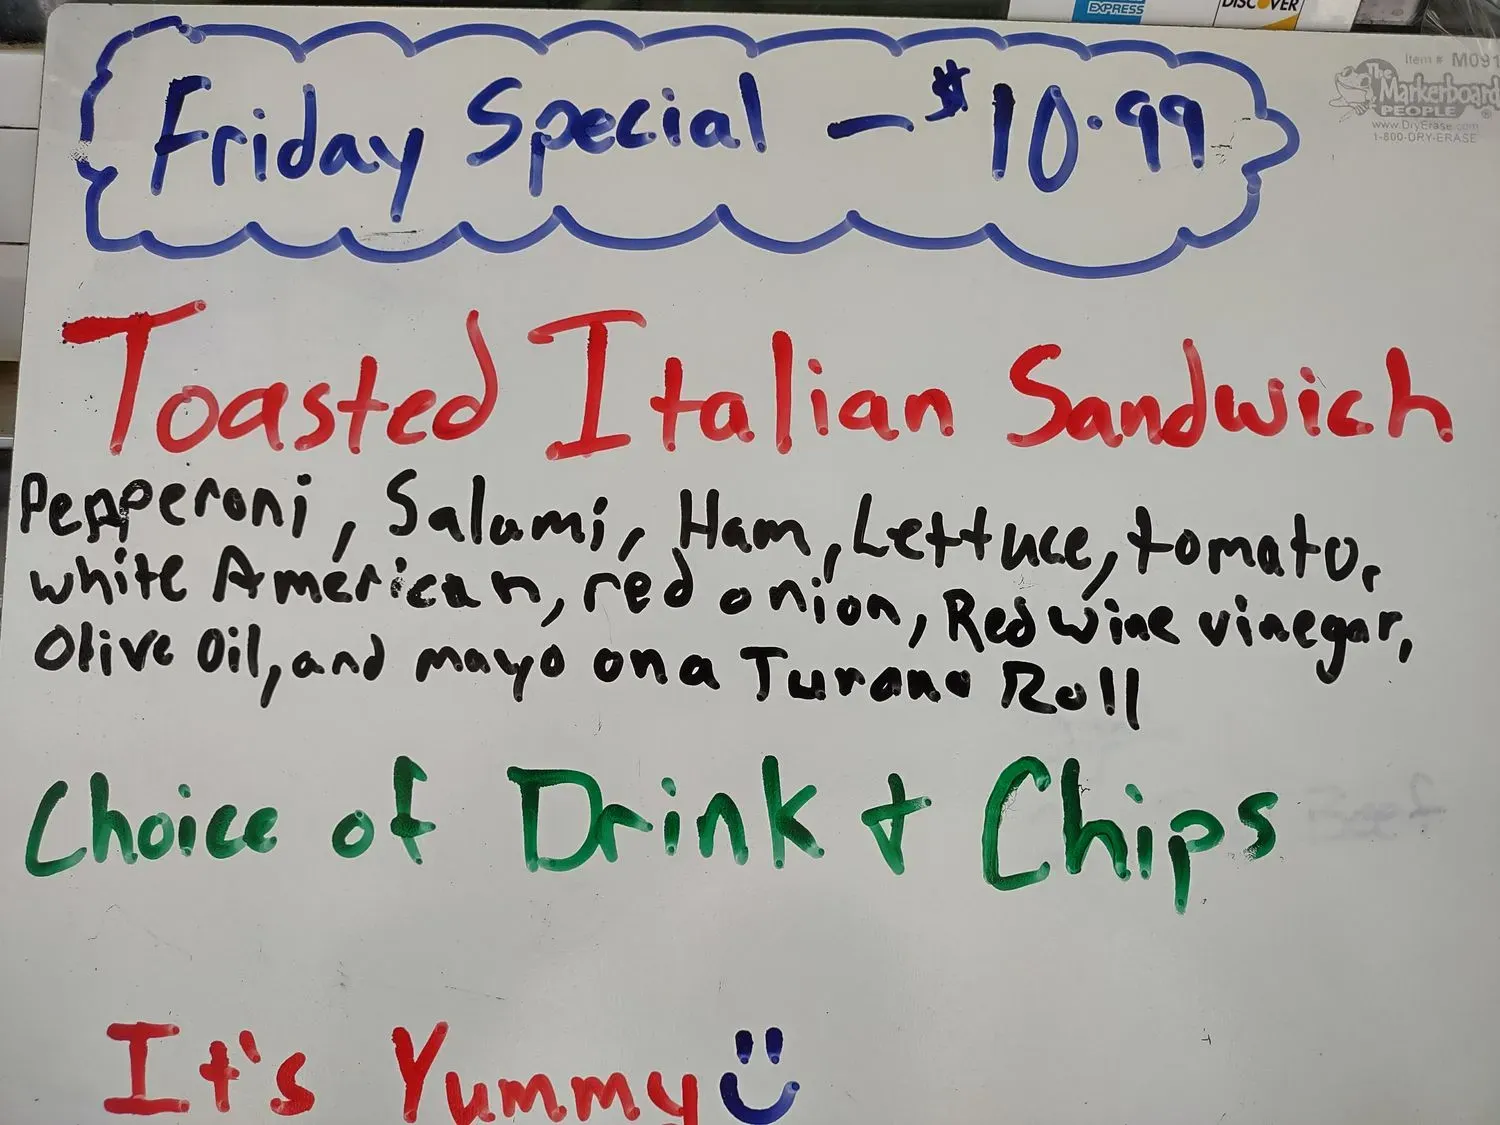 EXPRESS
DISCOVER
Item # M091
The
Markerboard
PEOPLE ®
www.DryErase.com
1-800-DRY-ERASE
Friday Special - $10.99
Toasted Italian Sandwich
Pepperoni, Salami, Ham, Lettuce, tomato,
white American, red onion, Red wine vinegar,
Olive Oil, and mayo on a Turano Roll
Choice of Drink + Chips
It's Yummy